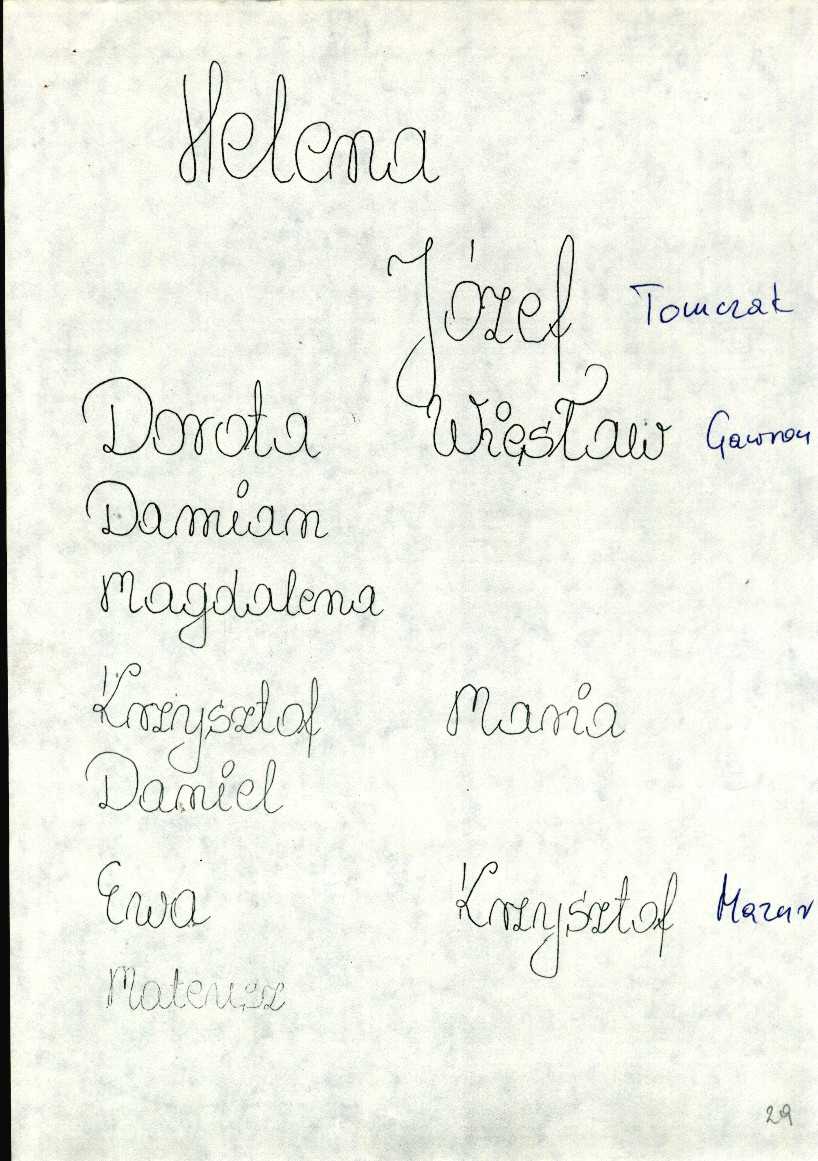 Helena
Józef Tomczak
Dorota Więsław Gawron
Damian
Magdalena
Krzysztof Maria
Daniel
Ewa Krzysztof Mazur
Mateusz
29